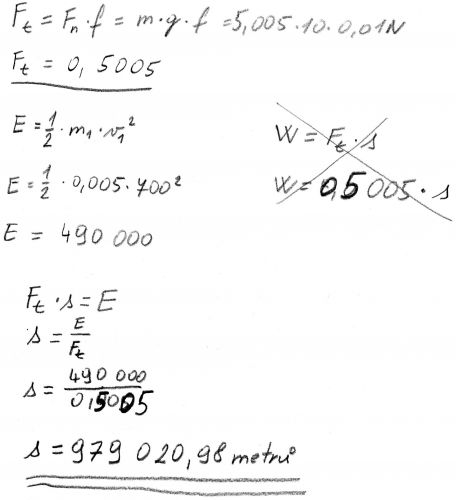 F_t = F_n · f = m · g · f = 5,005 · 10 · 0,01N
F_t = 0,5005
E = 1/2 · m_1 · v_1^2
W = F_t · s
E = 1/2 · 0,005 · 700^2
W = 0,5005 · s
E = 490 000
F_t · s = E
s = E/F_t
s = 490 000/0,5005
s = 979 020,98 metrů